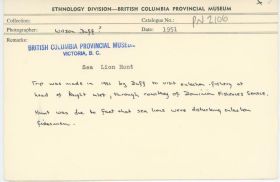 ETHNOLOGY DIVISION—BRITISH COLUMBIA PROVINCIAL MUSEUM
Collection: Catalogue No.: PN 2106
Photographer: Wilson Duff? Date: 1951
Remarks:
BRITISH COLUMBIA PROVINCIAL MUSEUM
VICTORIA, B. C.
Sea Lion Hunt
Trip was made in 1951 by Duff to visit eulachon fishery at
head of Knight Inlet, through courtesy of Dominion Fisheries Service.
Hunt was due to fact that sea lions were disturbing eulachon
fishermen.